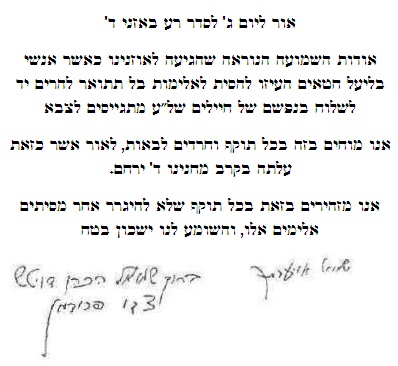 אור ליום ג' לסדר רע באזני ד'
אודות השמועה הנוראה שהגיעה לאוזנינו כאשר אנשי
בליעל חטאים העיזו להסית לאלימות בל תתואר להרים יד
לשלוח בנפשם של חיילים של״ע מתגייסים לצבא
אנו מוחים בזה בכל תוקף וחרדים לבאות, לאור אשר כזאת
עלתה בקרב מחנינו ד' ירחם.
אנו מזהירים בזאת בכל תוקף שלא להיגרר אחר מסיתים
אלימים אלו, והשומע לנו ישכון בטח
שמואל אויערבך
ברוך שמואל הכהן דויטש